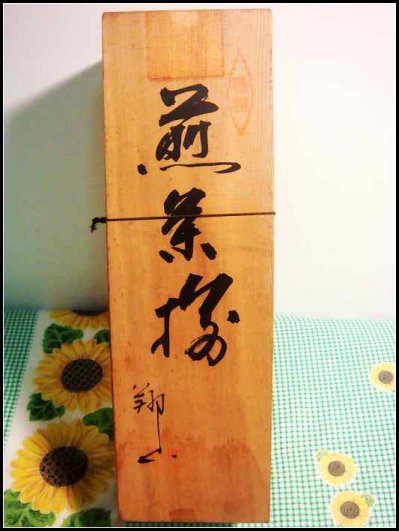 煎茶揃
翔山